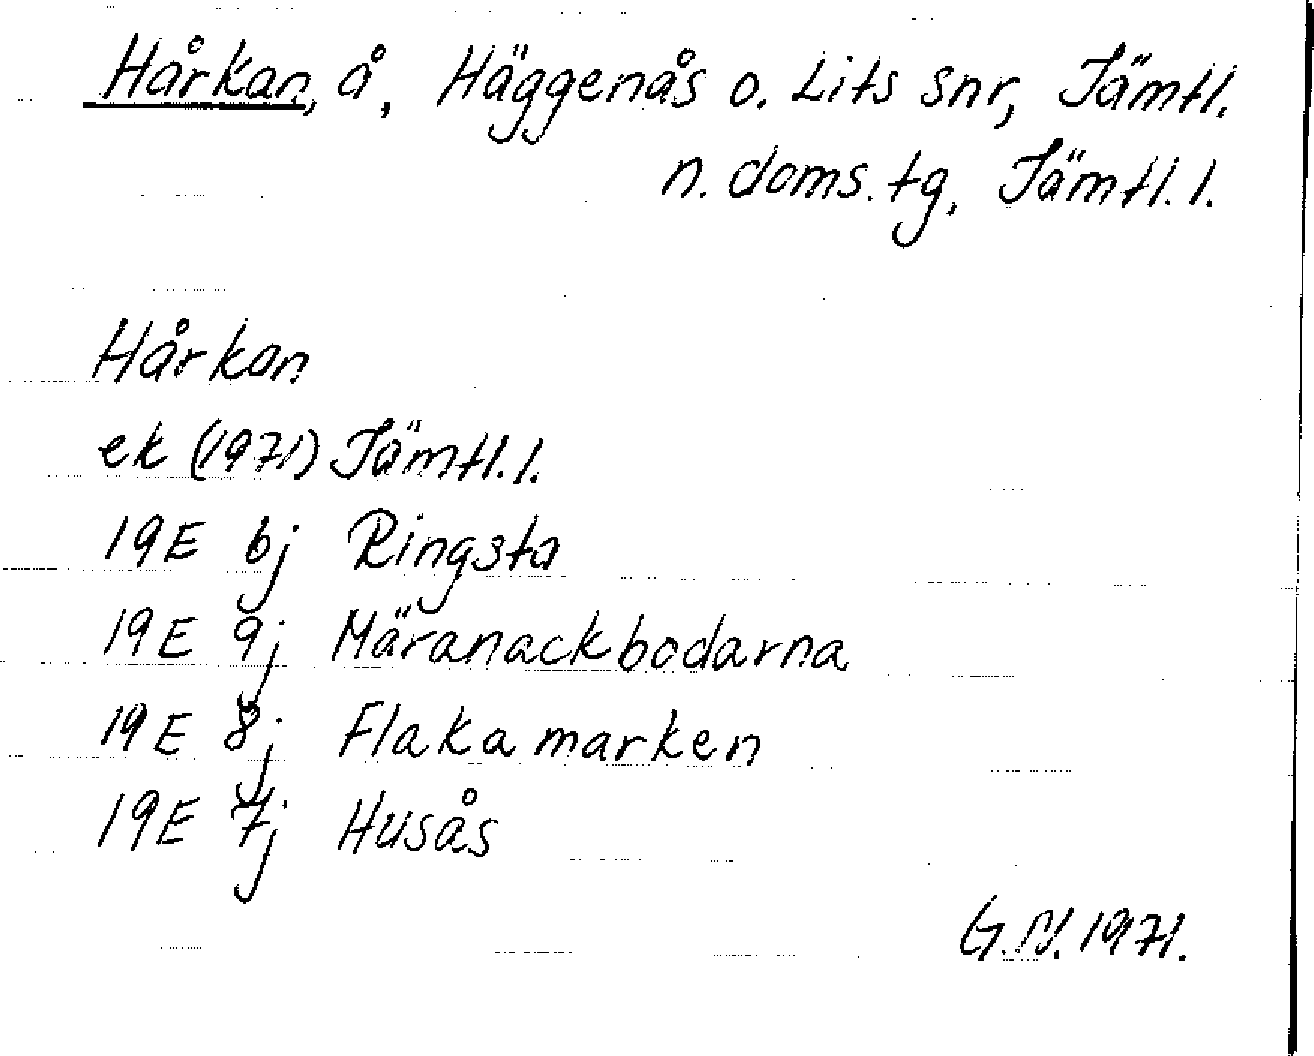 Hårkan, å, Häggenås o. Lits snr, Jämtl.
n. doms. tg, Jämtl. l.
Hårkan
ek (1971) Jämtl. l.
19E 6j Ringsta
19E 9j Märanackbodarna
19E 8j Flakamarken
19E 7j Husås
G.N. 1971.